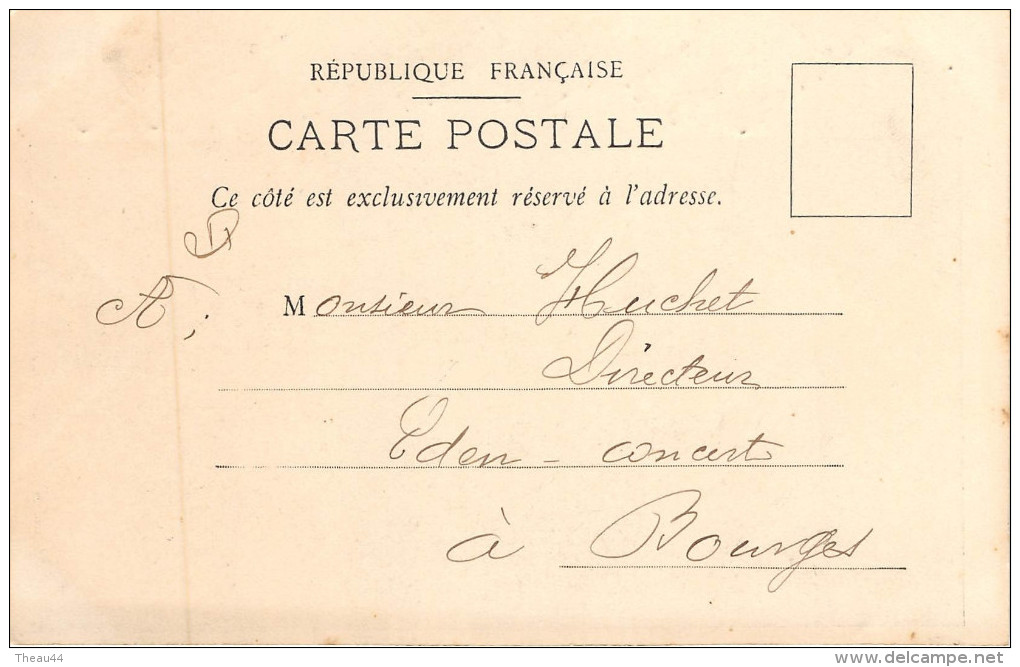 RÉPUBLIQUE FRANÇAISE
CARTE POSTALE
Ce côté est exclusivement réservé à l'adresse.
Monsieur Huchet
Directeur
Eden - concert
à Bourges
Theau44
delcampe.net